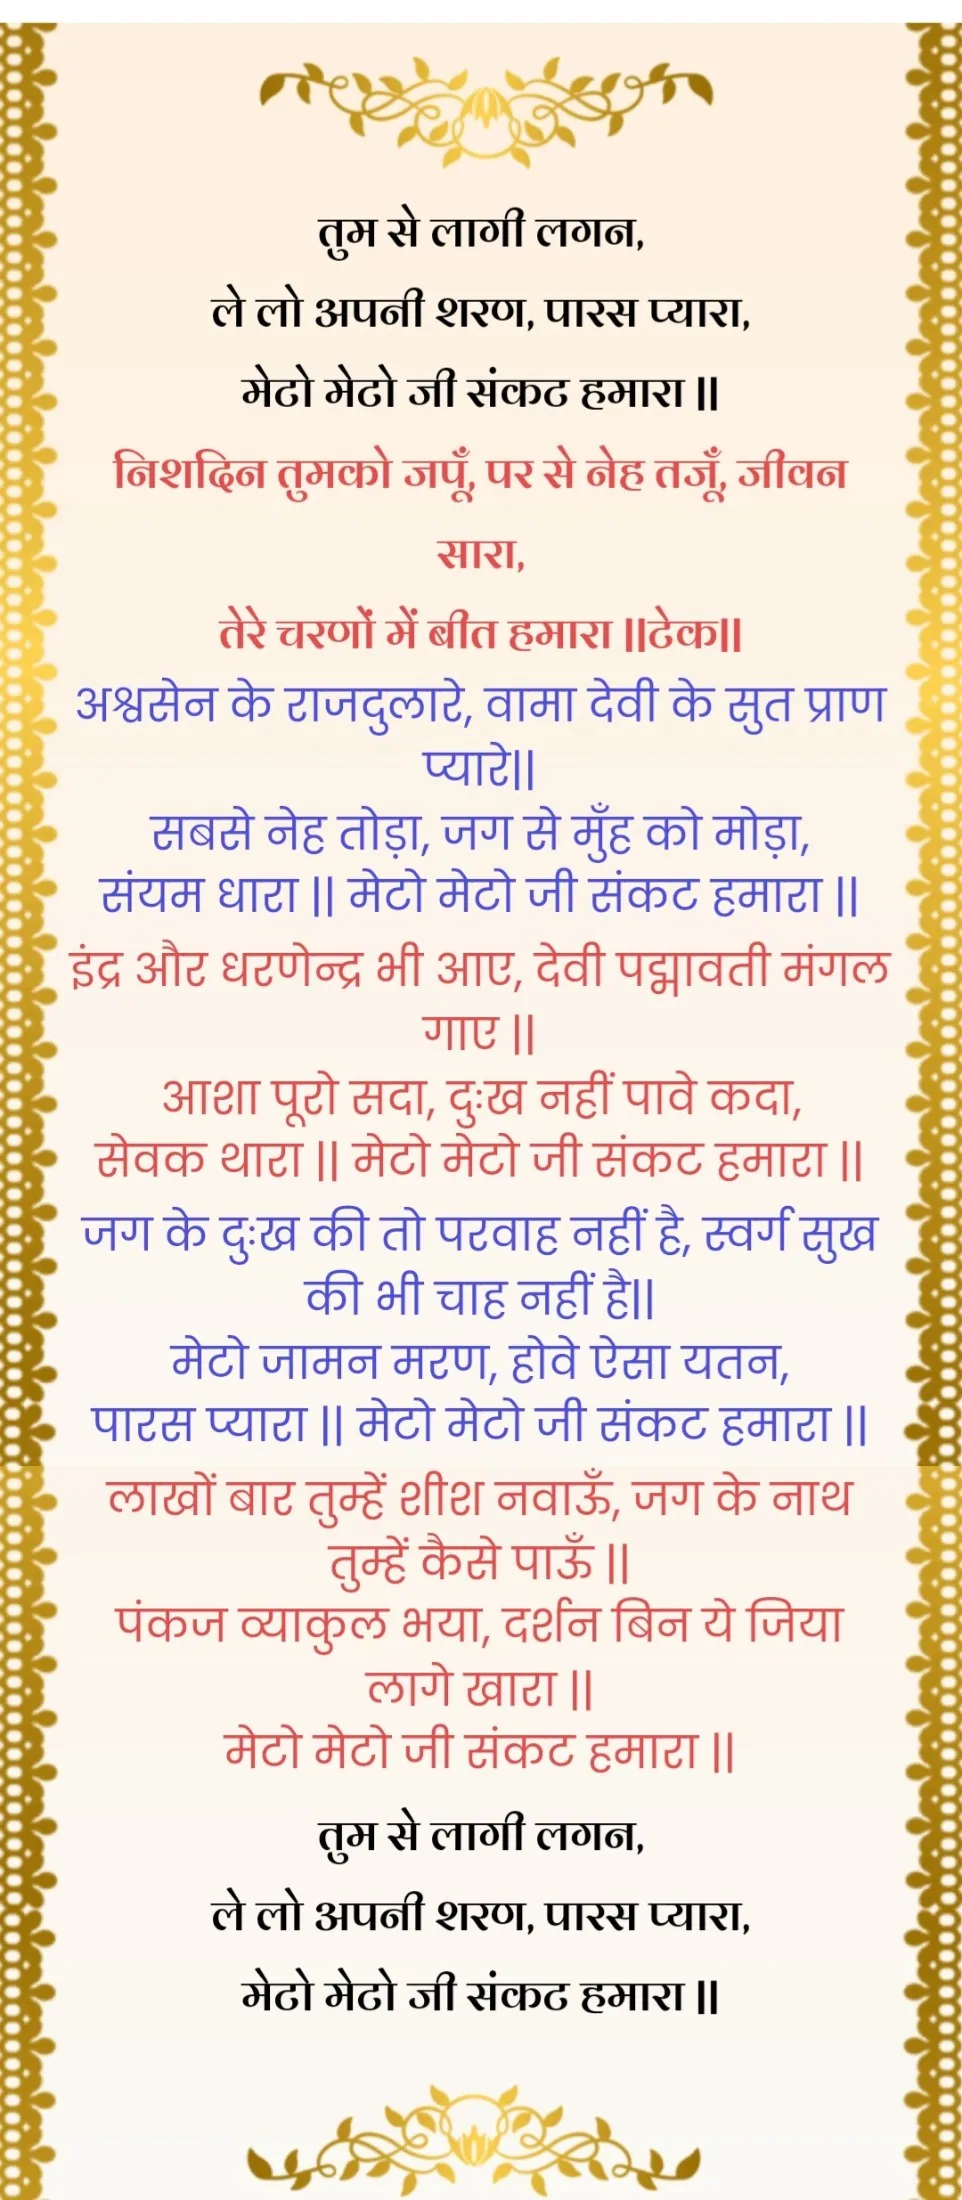 तुम से लागी लगन,
ले लो अपनी शरण, पारस प्यारा,
मेटो मेटो जी संकट हमारा ||
निशदिन तुमको जपूँ, पर से नेह तजूँ, जीवन
सारा,
तेरे चरणों में बीत हमारा ||टेक||
अश्वसेन के राजदुलारे, वामा देवी के सुत प्राण
प्यारे||
सबसे नेह तोड़ा, जग से मुँह को मोड़ा,
संयम धारा || मेटो मेटो जी संकट हमारा ||
इंद्र और धरणेन्द्र भी आए, देवी पद्मावती मंगल
गाए ||
आशा पूरो सदा, दुःख नहीं पावे कदा,
सेवक थारा || मेटो मेटो जी संकट हमारा ||
जग के दुःख की तो परवाह नहीं है, स्वर्ग सुख
की भी चाह नहीं है||
मेटो जामन मरण, होवे ऐसा यतन,
पारस प्यारा || मेटो मेटो जी संकट हमारा ||
लाखों बार तुम्हें शीश नवाऊँ, जग के नाथ
तुम्हें कैसे पाऊँ ||
पंकज व्याकुल भया, दर्शन बिन ये जिया
लागे खारा ||
मेटो मेटो जी संकट हमारा ||
तुम से लागी लगन,
ले लो अपनी शरण, पारस प्यारा,
मेटो मेटो जी संकट हमारा ||